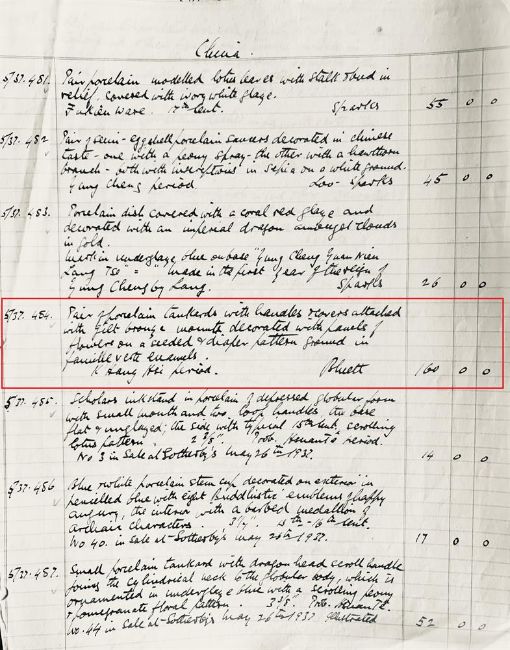 China.
5/37. 481. Pair porcelain modelled lotus leaves with stalk & bud in
relief, covered with ivory white glaze.
Fukien Ware. 17th Cent. Sparks 55 0 0
5/37. 482 Pair of semi-eggshell porcelain saucers decorated in Chinese
taste - one with a peony spray - the other with a hawthorn
branch - both with inscriptions in sepia on a white ground.
Yung Cheng period. Loo - Sparks 45 0 0
5/37. 483. Porcelain dish covered with a coral red glaze and
decorated with an imperial dragon amongst clouds
in gold.
Mark in underglaze blue on base "Yung Cheng Yuan Nien
Lang Tso" = made in the first year of the reign of
Yung Cheng by Lang. Sparks 26 0 0
5/37. 484. Pair of porcelain tankards with handles & covers attached
with gilt bronze mounts, decorated with panels of
flowers on a seeded & diaper pattern ground in
famille verte enamels.
K'ang Hsi period. Bluett 160 0 0
5/37. 485. Scholars inkstand in porcelain of depressed globular form
with small mouth and two loop handles, the base
flat & unglazed; the side with typical 15th cent. scrolling
lotus pattern. 2 3/8". Prob. Hsuante period.
No 3 in Sale at Sotheby's May 26th 1937. 14 0 0
5/37. 486 Blue & white porcelain stem cup decorated on exterior in
pencilled blue with eight Buddhistic emblems of happy
augury, the interior with a barbed medallion of
archaic characters. 15th-16th cent.
No 40. in Sale at Sotheby's May 26th 1937. 17 0 0
5/37. 487. Small porcelain tankard with dragon head scroll handle
joining the cylindrical neck to the globular body, which is
ornamented in underglaze blue with a scrolling peony
& pomegranate floral pattern. Prob. Hsuante.
No. 44 in Sale at Sotheby's May 26th 1937 illustrated 52 0 0